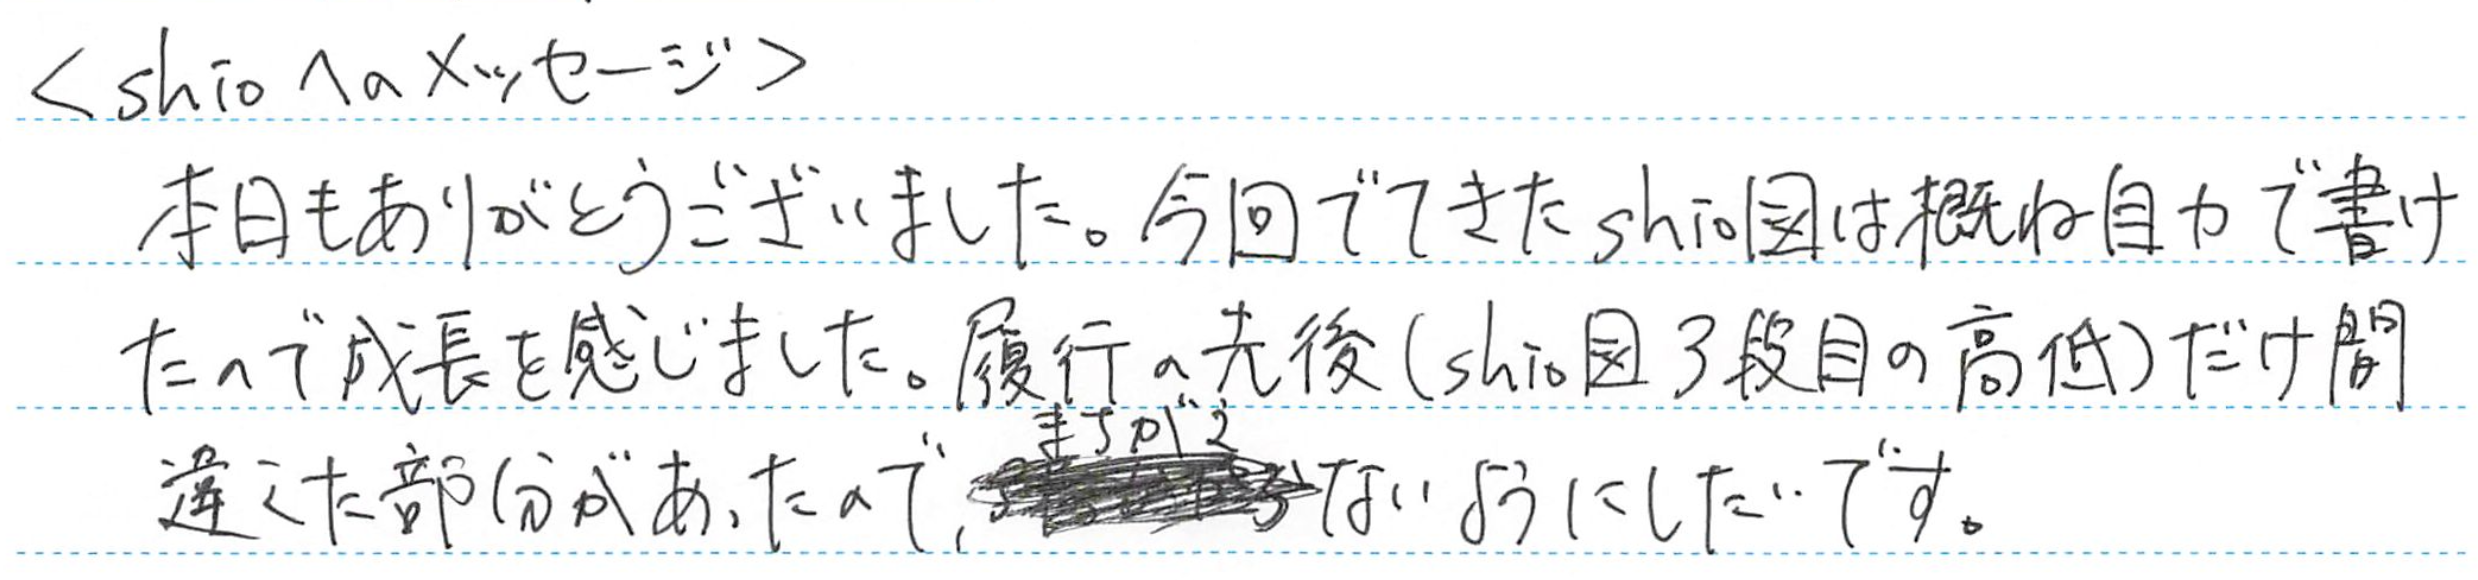 <shioへのメッセージ>
本日もありがとうございました。今回でてきたshio図は概ね自力で書け
たので成長を感じました。履行の先後(shio図3段目の高低)だけ間
違えた部分があったので、まちがえないようにしたいです。